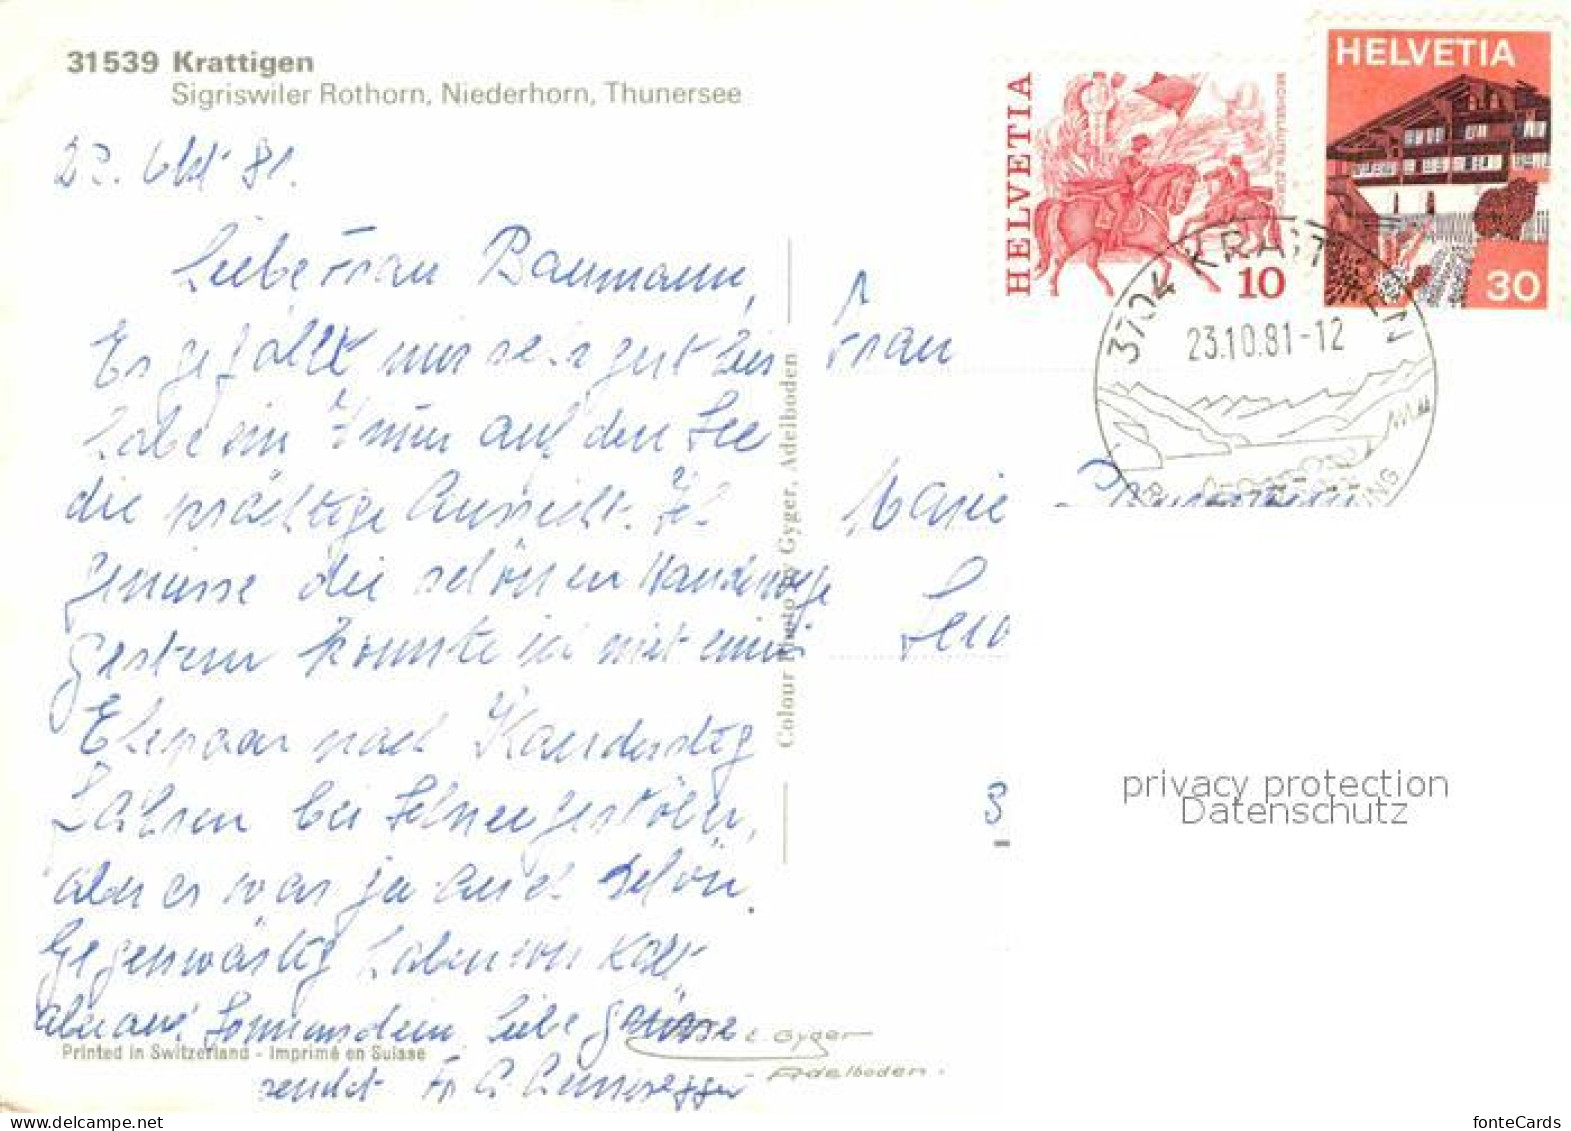 31539 Krattigen
Sigriswiler Rothorn, Niederhorn, Thunersee
22. Okt 81.
Liebe Frau Baumann,
Es gefällt mir sehr gut hier
habe ein Zimmer auf den See
die prächtige Aussicht. Ich
geniesse die schönen Wanderwege
gestern konnte ich mit einem
Ehepaar nach Kandersteg
fahren bei Schneegestöber,
aber es war ja auch schön.
Gegenwärtig haben wir kalt
aber auch Sonnenschein. Liebe Grüsse
sendet Fr
HELVETIA
SECHSELÄUTEN ZÜRICH
10
HELVETIA
30
3704 KRATTIGEN
23.10.81-12
Frau
Marie Baumann
Colour Photo by Gyger, Adelboden
Printed in Switzerland - Imprimé en Suisse
E. Gyger
Adelboden.
privacy protection
Datenschutz
fonteCards